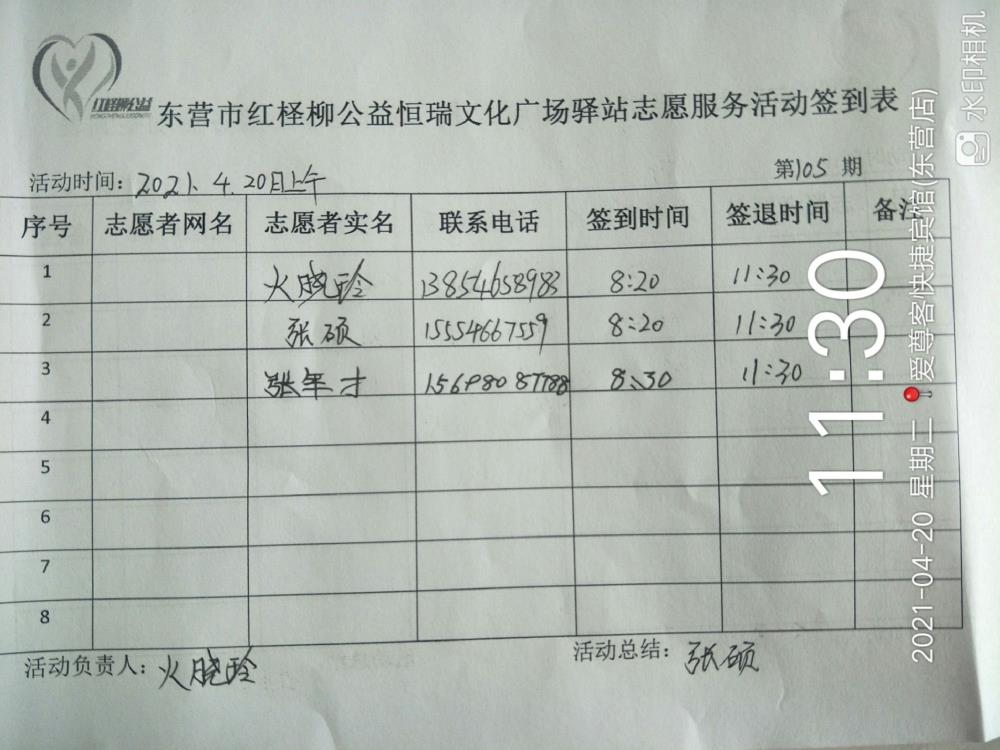 红柽柳公益
东营市红柽柳公益恒瑞文化广场驿站志愿服务活动签到表
活动时间：2021、4.20日上午 第105期
序号 志愿者网名 志愿者实名 联系电话 签到时间 签退时间 备注
1 火晓玲 13854658983 8:20 11:30
2 张硕 15554667559 8:20 11:30
3 张年才 8:30 11:30
4
5
6
7
8
活动负责人：火晓玲 活动总结：张硕
水印相机
11:30
爱尊客快捷宾馆(东营店)
2021-04-20 星期二